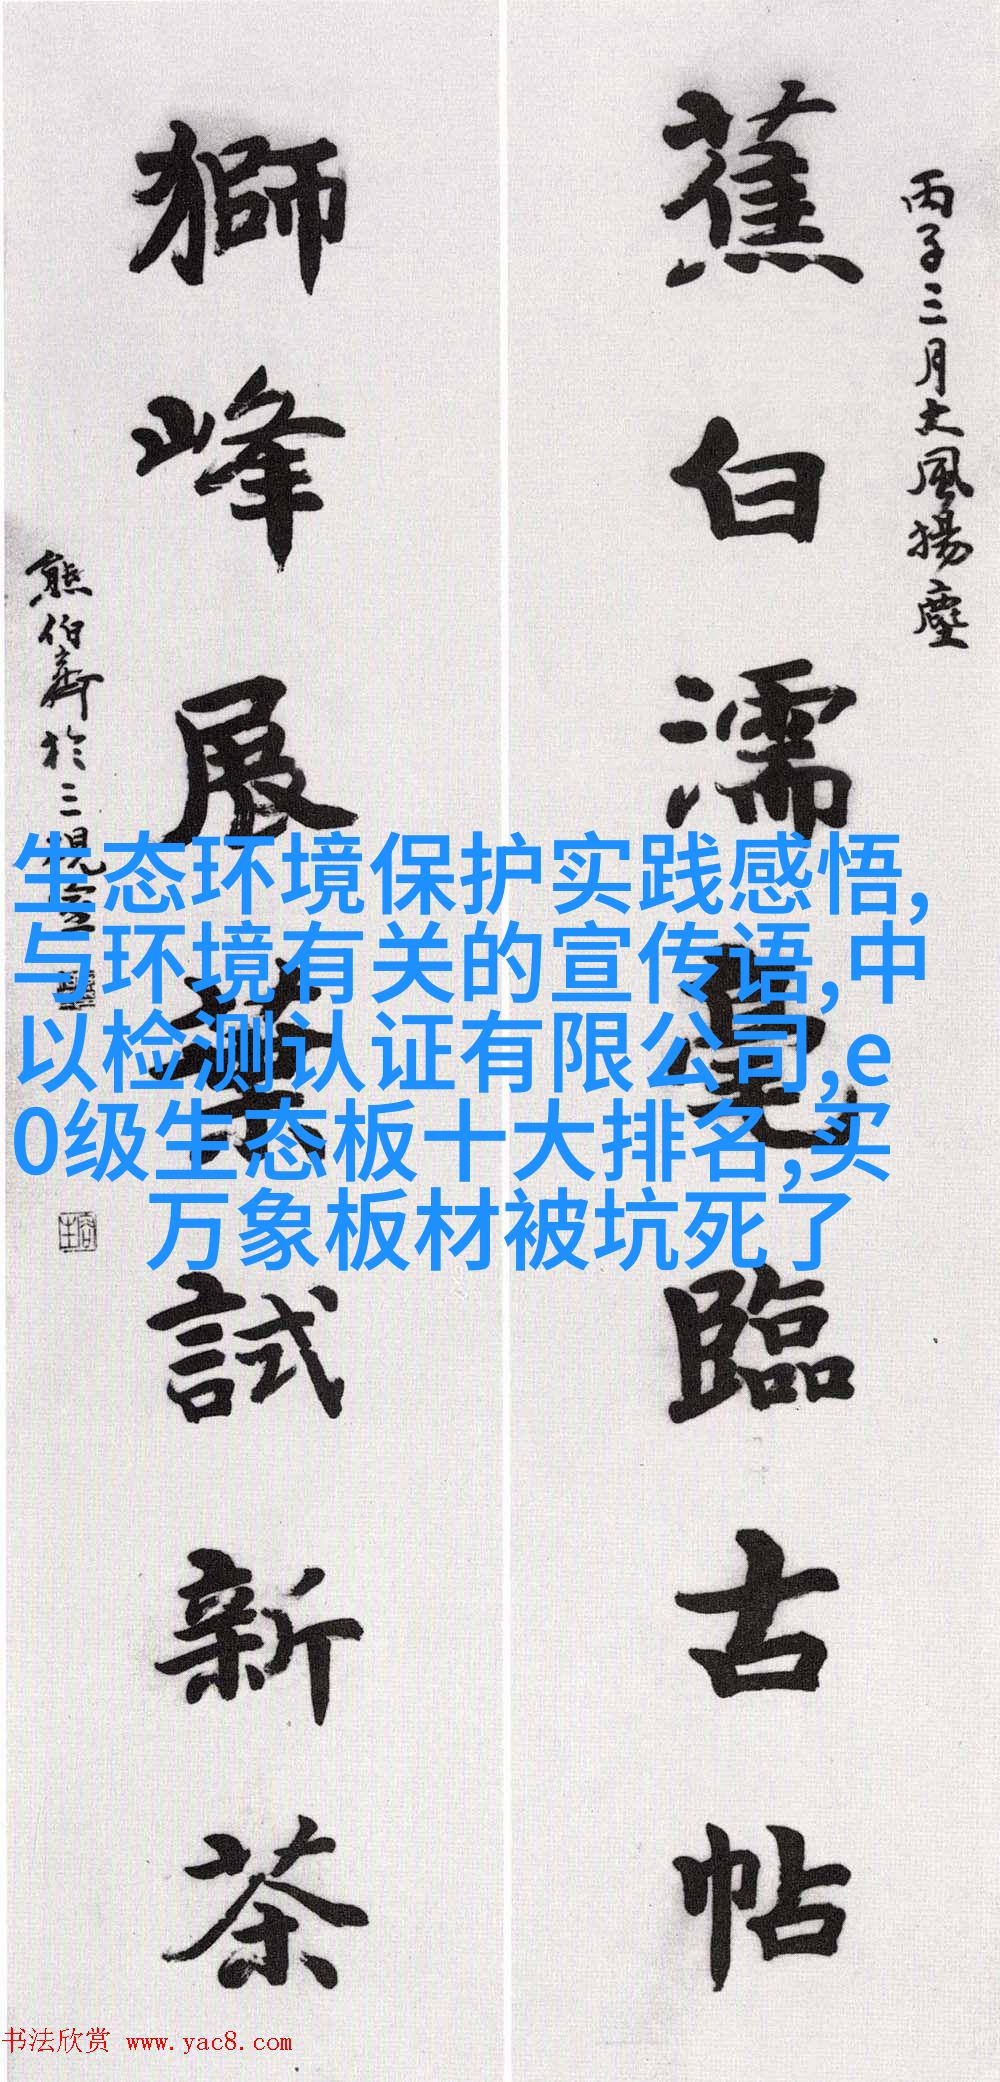 丙子三月大風揚塵
蕉白濡毫臨古帖
獅峰展葉試新茶
熊伯齊於三視室
生态环境保护实践感悟,
与环境有关的宣传语,中
以检测认证有限公司,e
0级生态板十大排名,买
万象板材被坑死了
书法欣赏 www.yac8.com